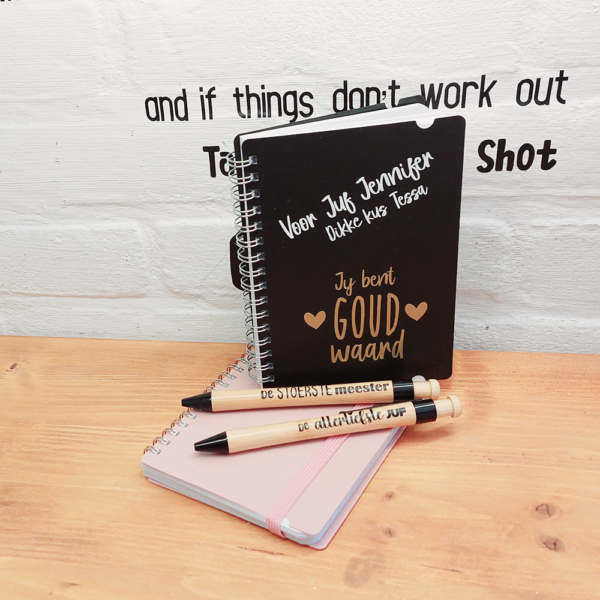 and if things don't work out
Shot
Voor Juf Jennifer
Dikke kus Tessa
Jy bent
GOUD
waard
De STOERSTE meester
DE allerliefste JUF